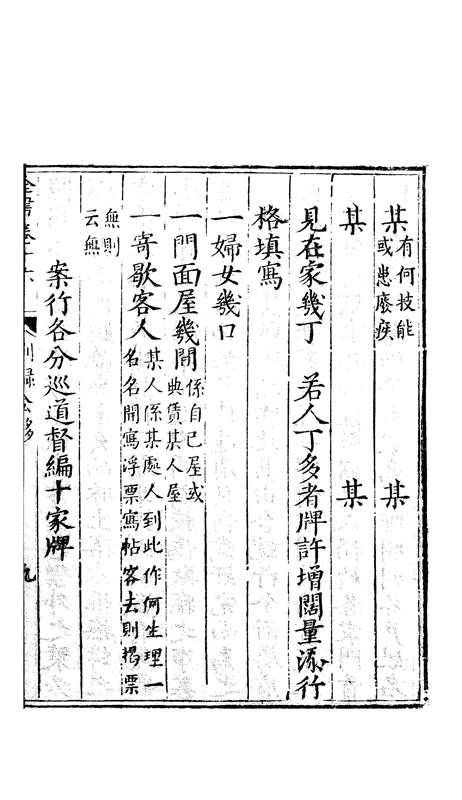 某有何技能或患廢疾　某
某　某
見在家幾丁　若人丁多者牌許增闊量添行
格填寫
一婦女幾口
一門面屋幾間係自己屋或典賃某人屋
一寄歇客人某人係某處人到此作何生理一名名開寫浮票寫帖客去則揭票
無則云無
案行各分巡道督編十家牌
全書卷十六　別錄公移　九